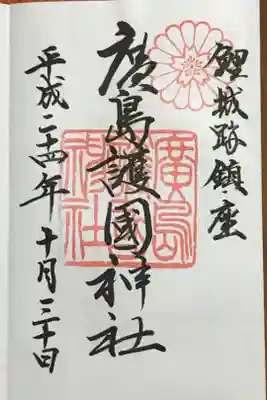 鯉城跡鎮座
廣島護國神社
平成二十四年十月三十日
廣島
護國
神社